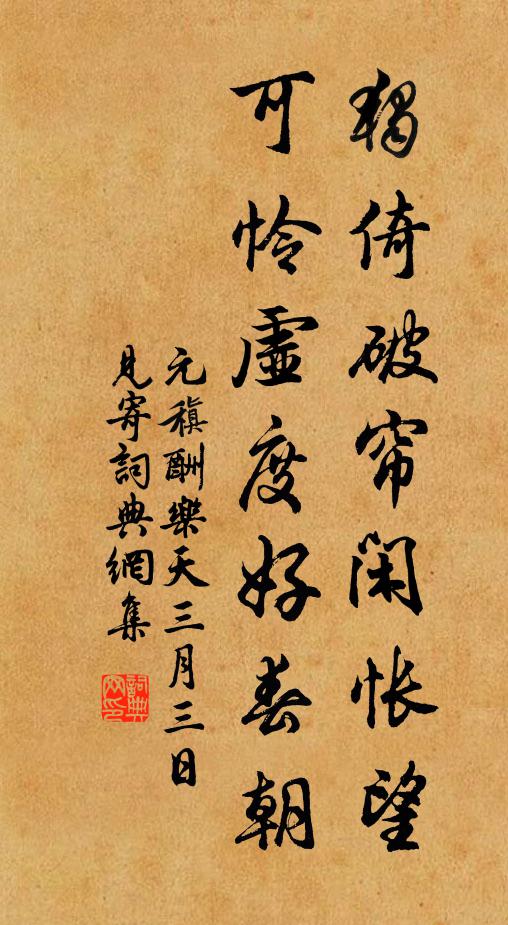 獨倚破帘閑悵望
可憐虛度好春朝
元稹酬樂天三月三日
見寄詞典網集
詞典
网印